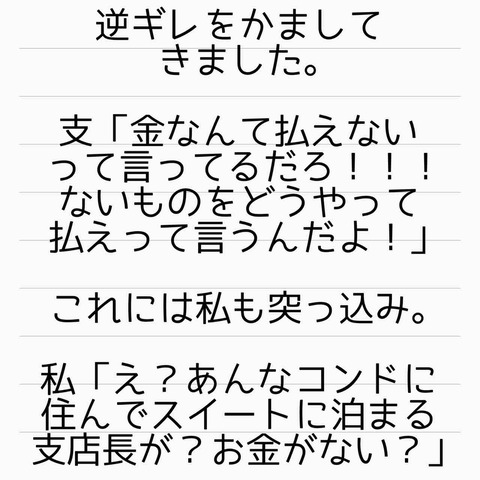 逆ギレをかまして
きました。
支「金なんて払えない
って言ってるだろ！！！
ないものをどうやって
払えって言うんだよ！」
これには私も突っ込み。
私「え？あんなコンドに
住んでスイートに泊まる
支店長が？お金がない？」